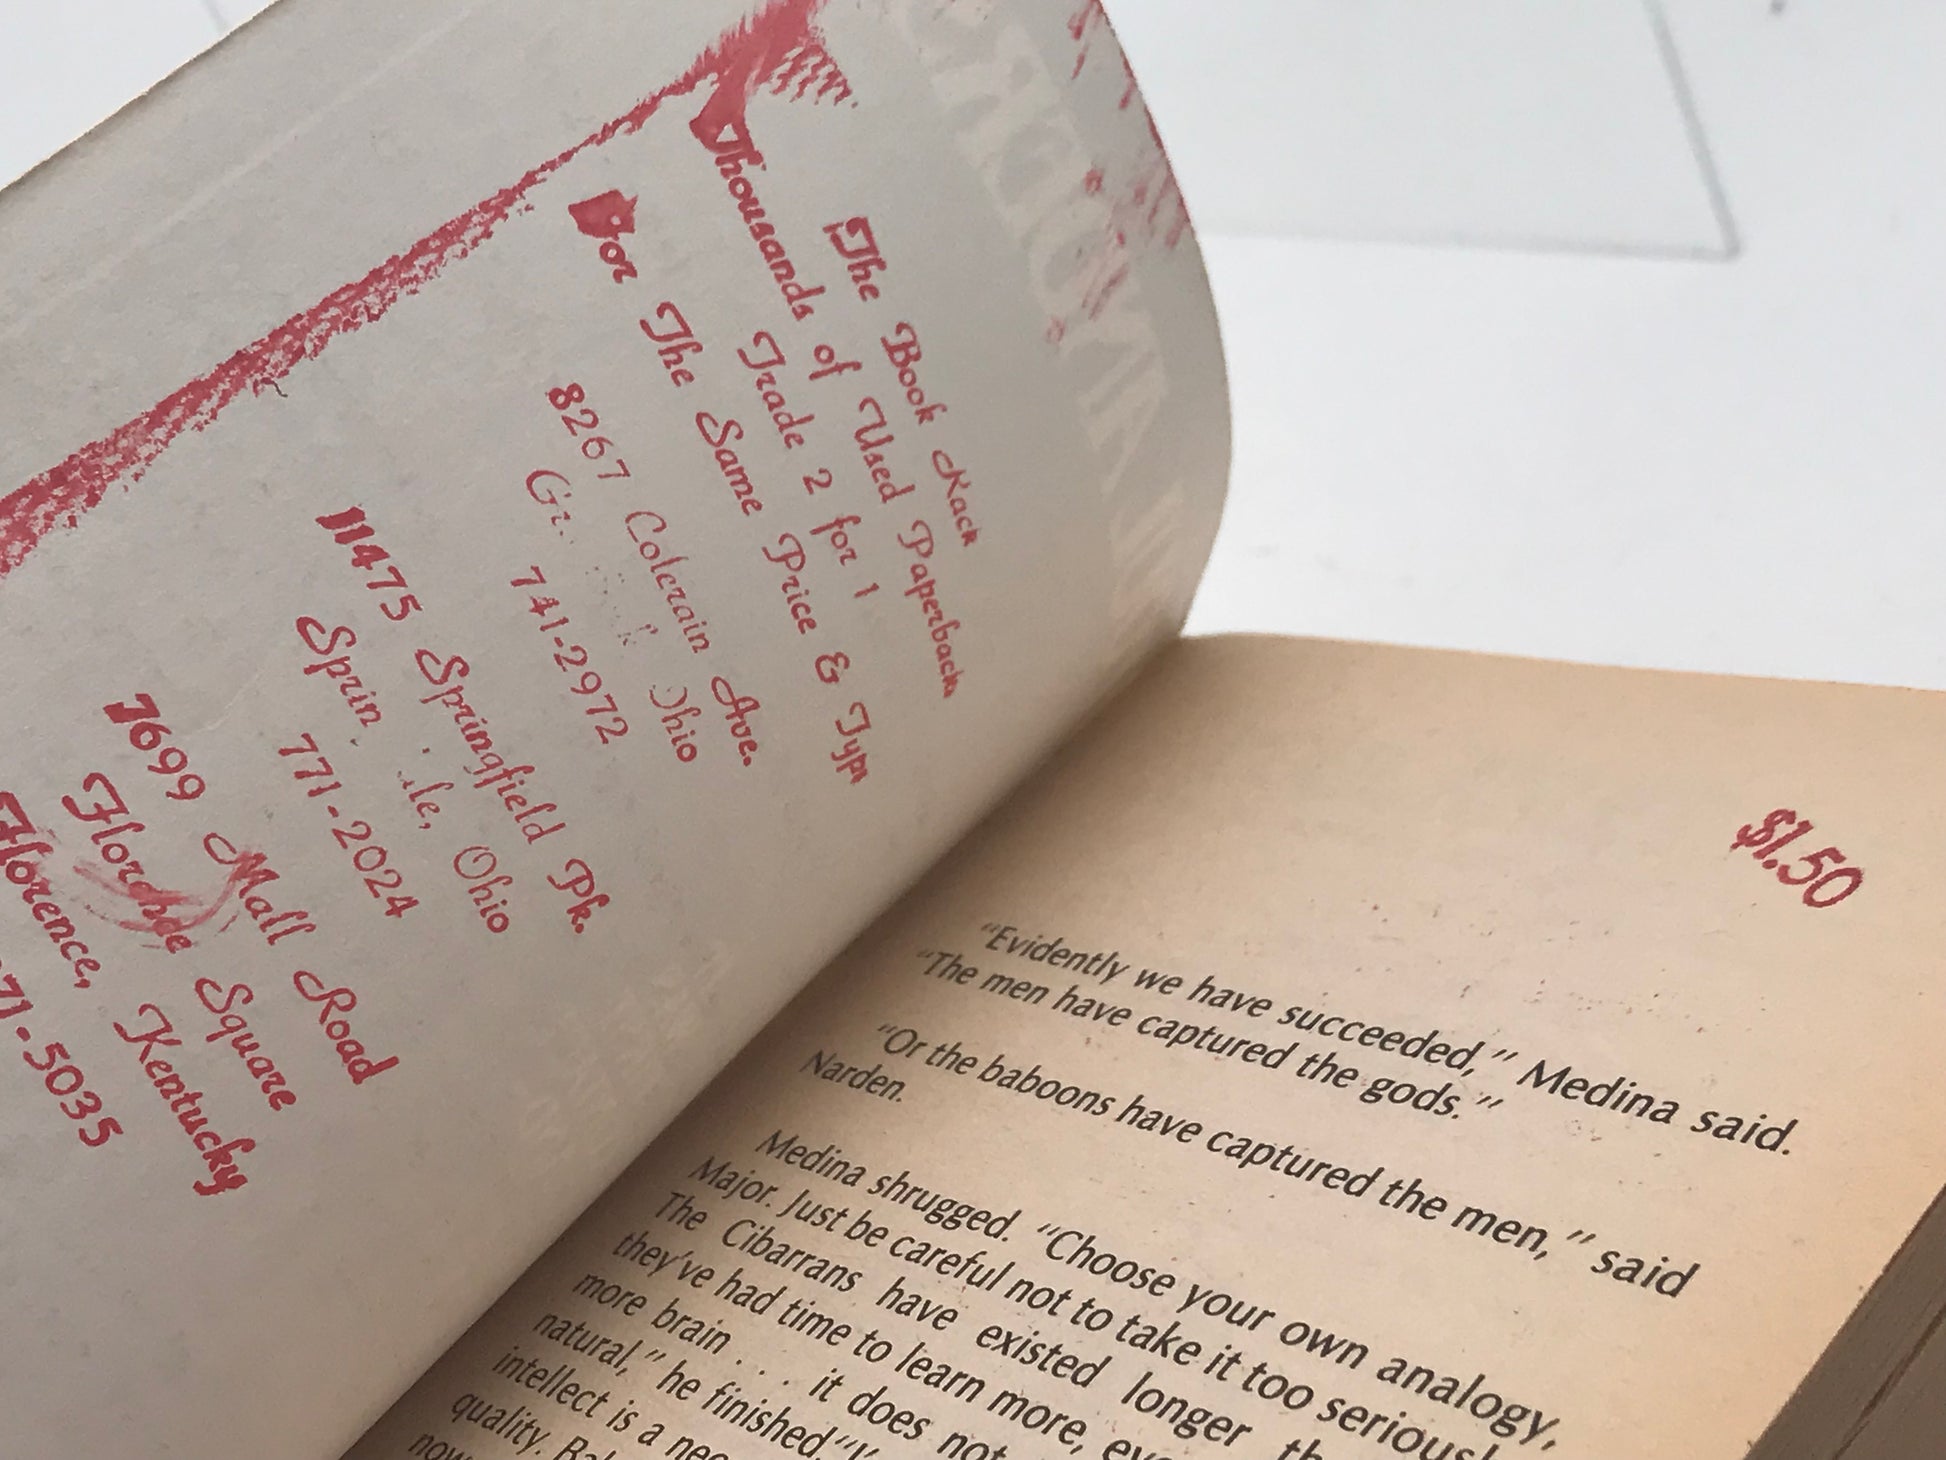 The Book Rack
Thousands of Used Paperbacks
Trade 2 for 1
For The Same Price & Type
8267 Colerain Ave.
Ohio
741-2972
11475 Springfield Pk.
Ohio
771-2024
7699 Mall Road
Square
Florence, Kentucky
71-5035
$1.50
"Evidently we have succeeded," Medina said.
"The men have captured the gods."
"Or the baboons have captured the men," said
Narden.
Medina shrugged. "Choose your own analogy,
Major. Just be careful not to take it too seriously
The Cibarrans have existed longer
they've had time to learn more,
more brain . . . it does not
natural," he finished.
intellect is a
quality.
now